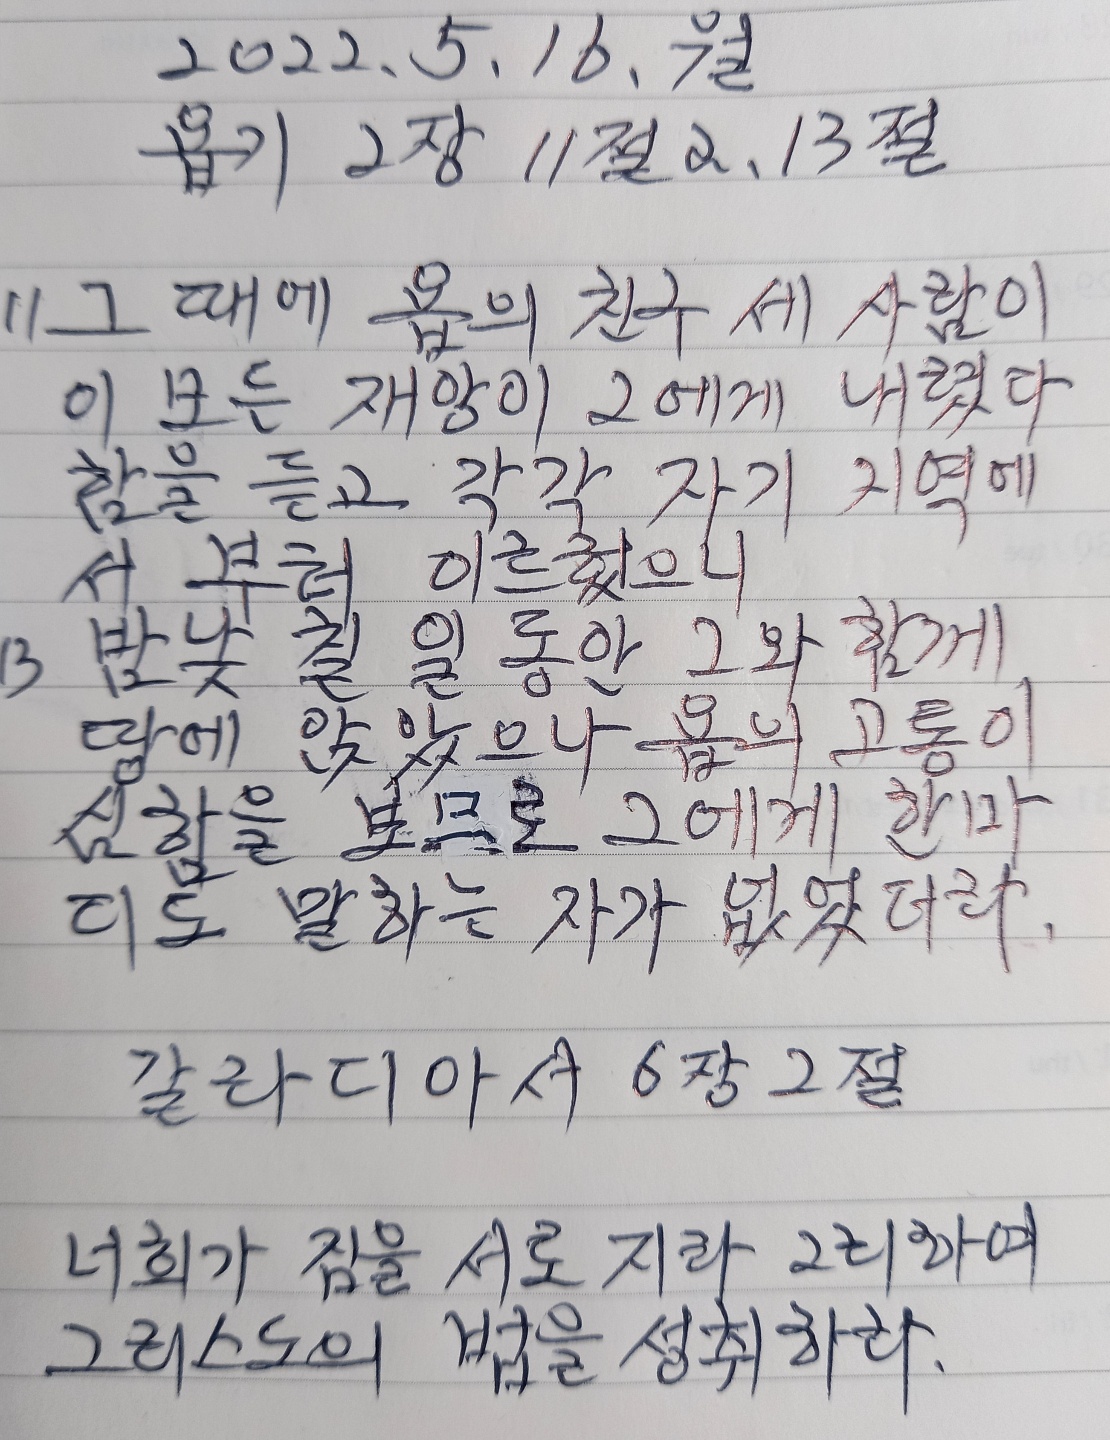 2022. 5. 16. 월
욥기 2장 11절a, 13절
11 그 때에 욥의 친구 세 사람이
이 모든 재앙이 그에게 내렸다
함을 듣고 각각 자기 지역에
서 부터 이르렀으니
13 밤낮 칠 일 동안 그와 함께
땅에 앉았으나 욥의 고통이
심함을 보므로 그에게 한마
디도 말하는 자가 없었더라.
갈라디아서 6장 2절
너희가 짐을 서로 지라 그리하여
그리스도의 법을 성취하라.